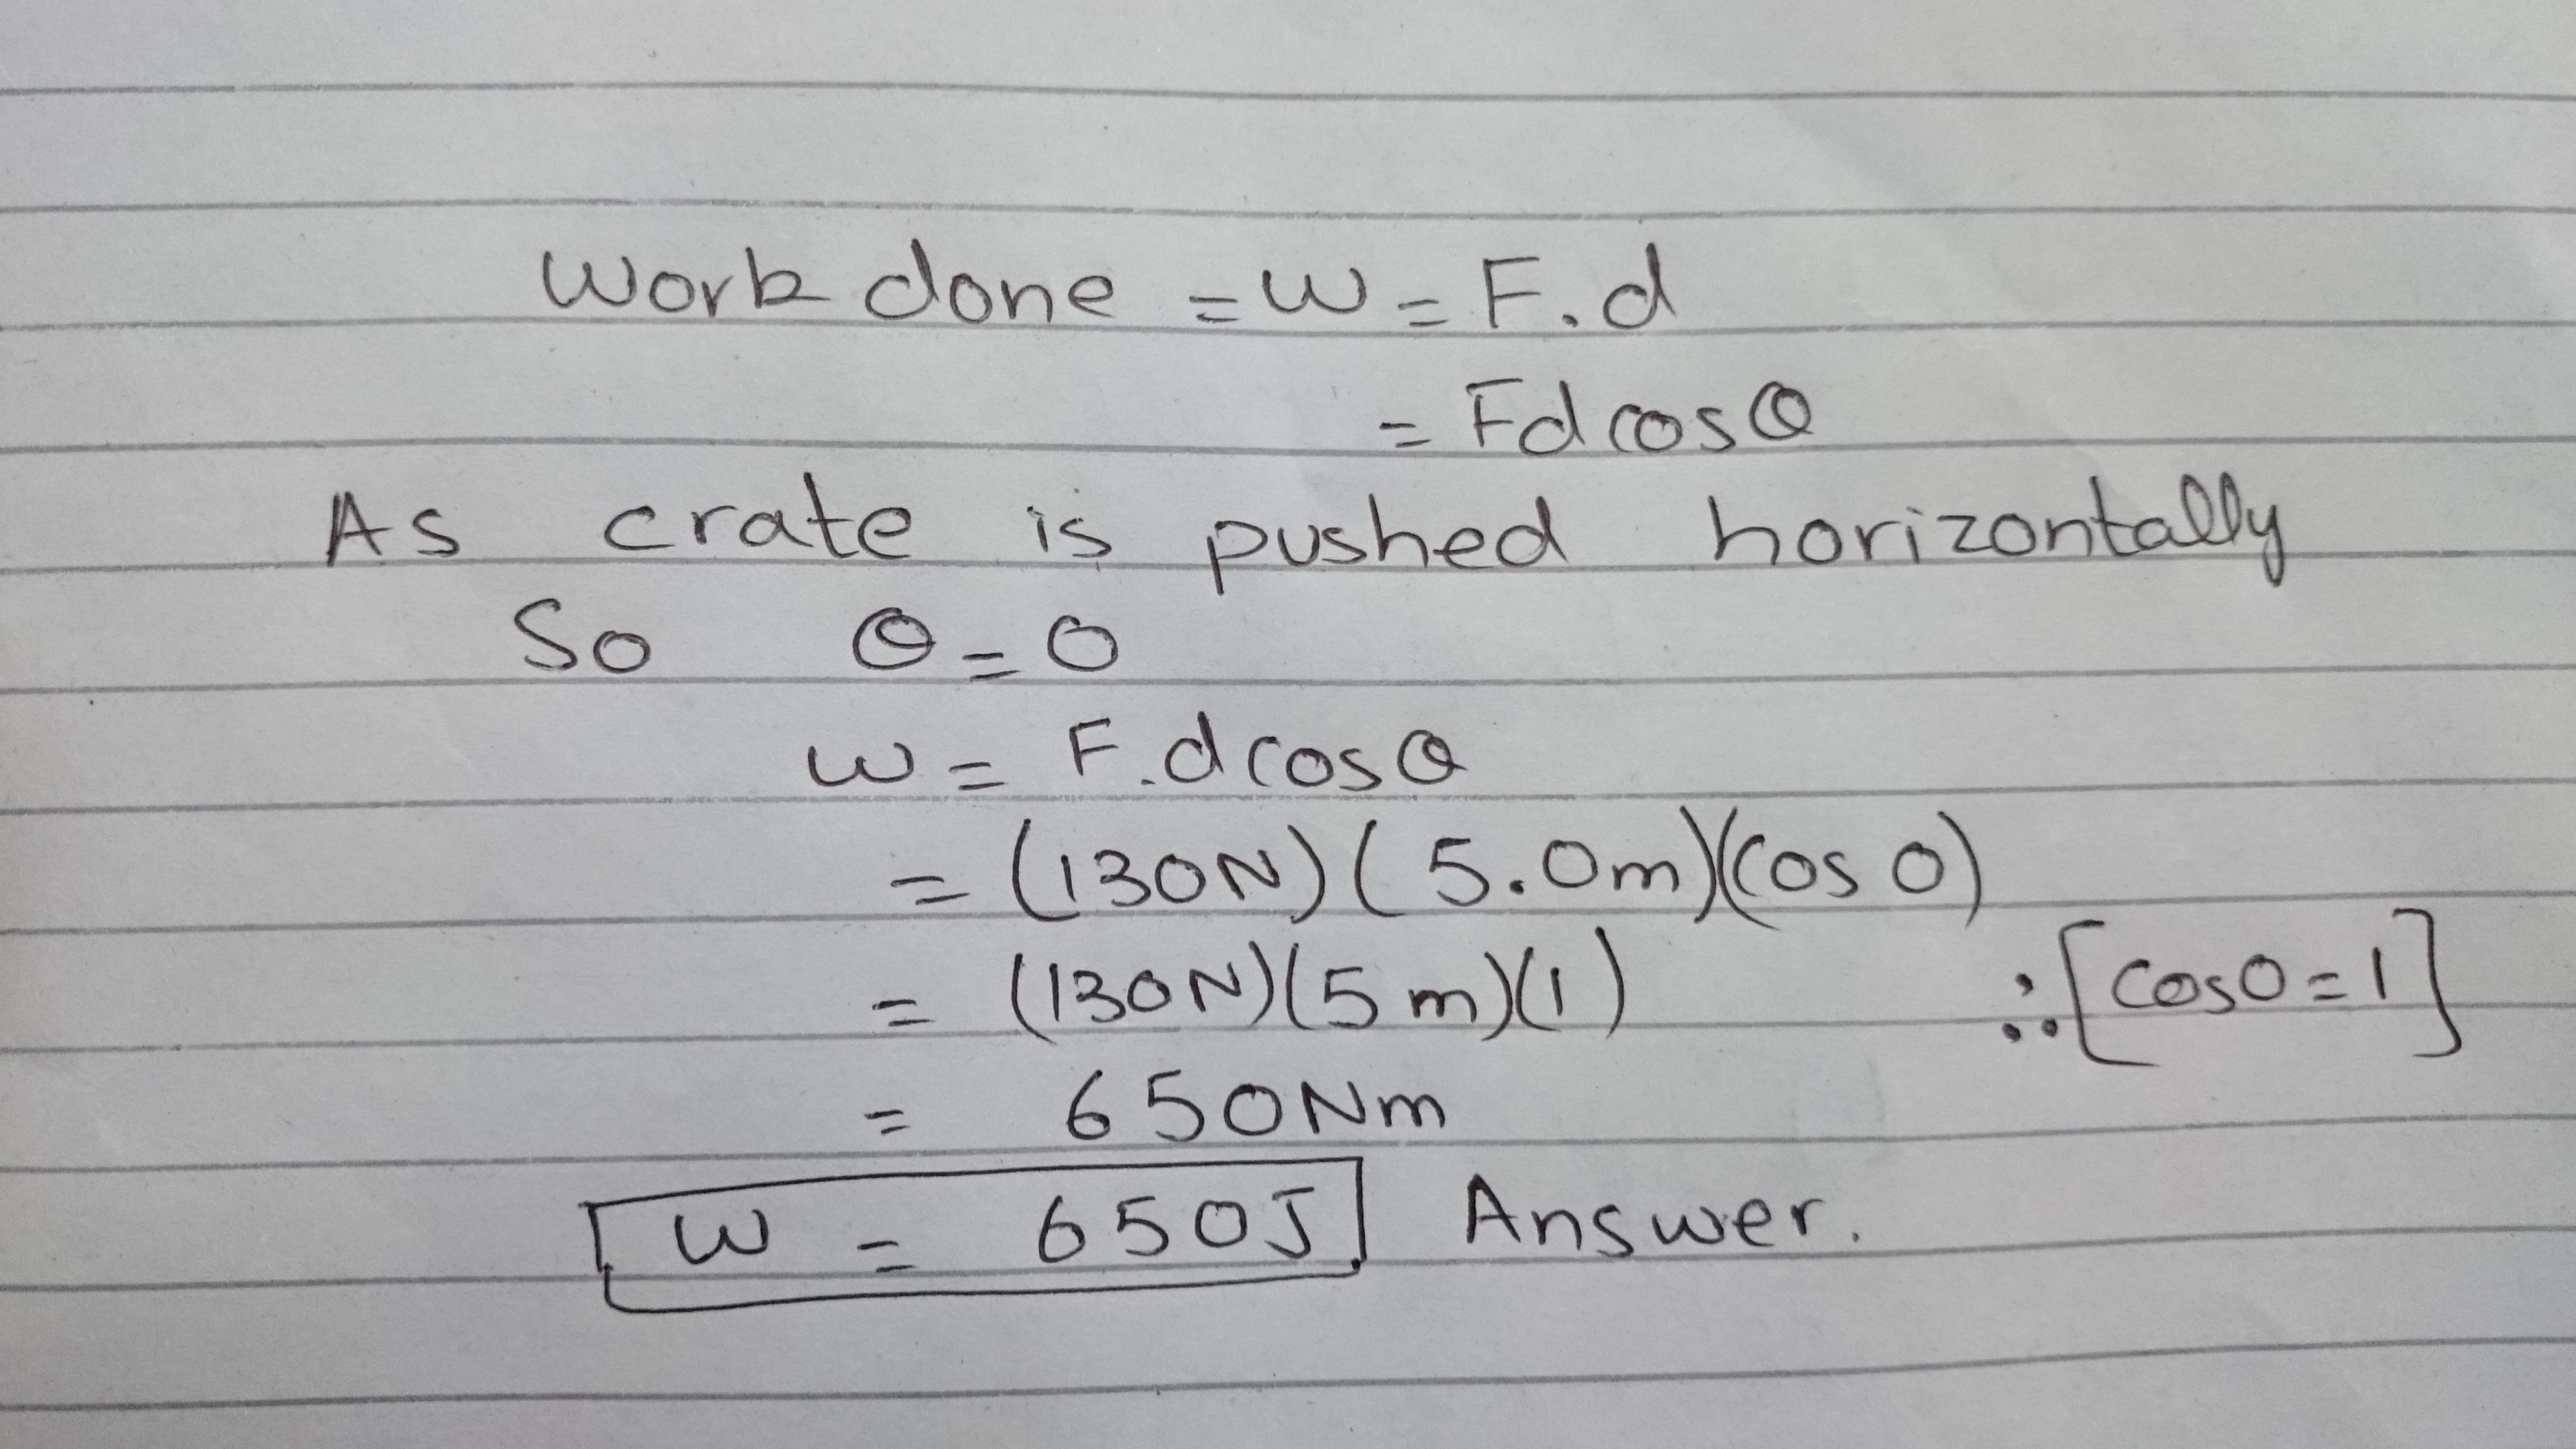 Work done = W = F.d
= Fd cosθ
As crate is pushed horizontally
So θ = 0
W = F.d cosθ
= (130N) (5.0m)(cos 0)
= (130N)(5m)(1) ∴ [cos0 = 1]
= 650Nm
W = 650J Answer.